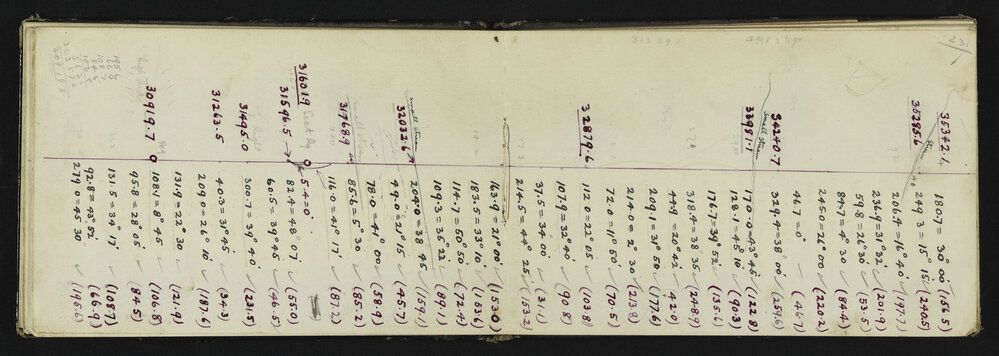 231
35342.1. 180.7 = 30° 00' (156.5)
35285.6 249.3 = 15° 15' (240.5)
206.4 = 16° 40' (197.7)
236.9 = 31° 32' (201.9)
59.8 = 26° 30 (53.5)
84.7 = 4° 30 (84.4)
245.0 = 26° 00 (220.2)
46.7 = 0° (46.7)
34240.7 329.4 = 38° 00 (259.6)
Small Stream
33981.1 170.0 = 43° 45' (122.8)
128.1 = 45° 10' (90.3)
176.7 = 39° 52' (135.6)
318.4 = 38° 35 (248.9)
44.9 = 20° 42' (42.0)
209.1 = 31° 50 (177.6)
214.0 = 2° 30 (213.8)
72.0 = 11° 50 (70.5)
112.0 = 22° 05 (103.8)
32879.6 107.9 = 32° 40 (90.8)
37.5 = 34 00 (31.1)
214.5 = 44° 25 (153.2)
163.9 = 21° 00' (153.0)
183.5 = 33° 10 (153.6)
114.7 = 50° 50 (72.4)
109.3 = 35° 22 (89.1)
Small Stream
32032.6 204.0 = 38 45 (159.1)
49.0 = 21° 15 (45.7)
78.0 = 41° 00 (58.9)
85.6 = 5° 30 (85.2)
31768.9 116.0 = 41° 17' (87.2)
31601.9 5.4 = 0°
31596.5 82.4 = 48° 07 (55.0)
60.5 = 39° 45 (46.5)
31495.0 300.7 = 39° 40 (231.5)
31263.5 40.3 = 31° 45 (34.3)
209.0 = 26° 10 (187.6)
131.9 = 22° 30 (121.9)
30919.7 108.1 = 8° 45 (106.8)
95.8 = 28 05 (84.5)
131.5 = 34° 17' (108.7)
92.8 = 43° 52' (66.9)
279 = 45 30 (195.6)